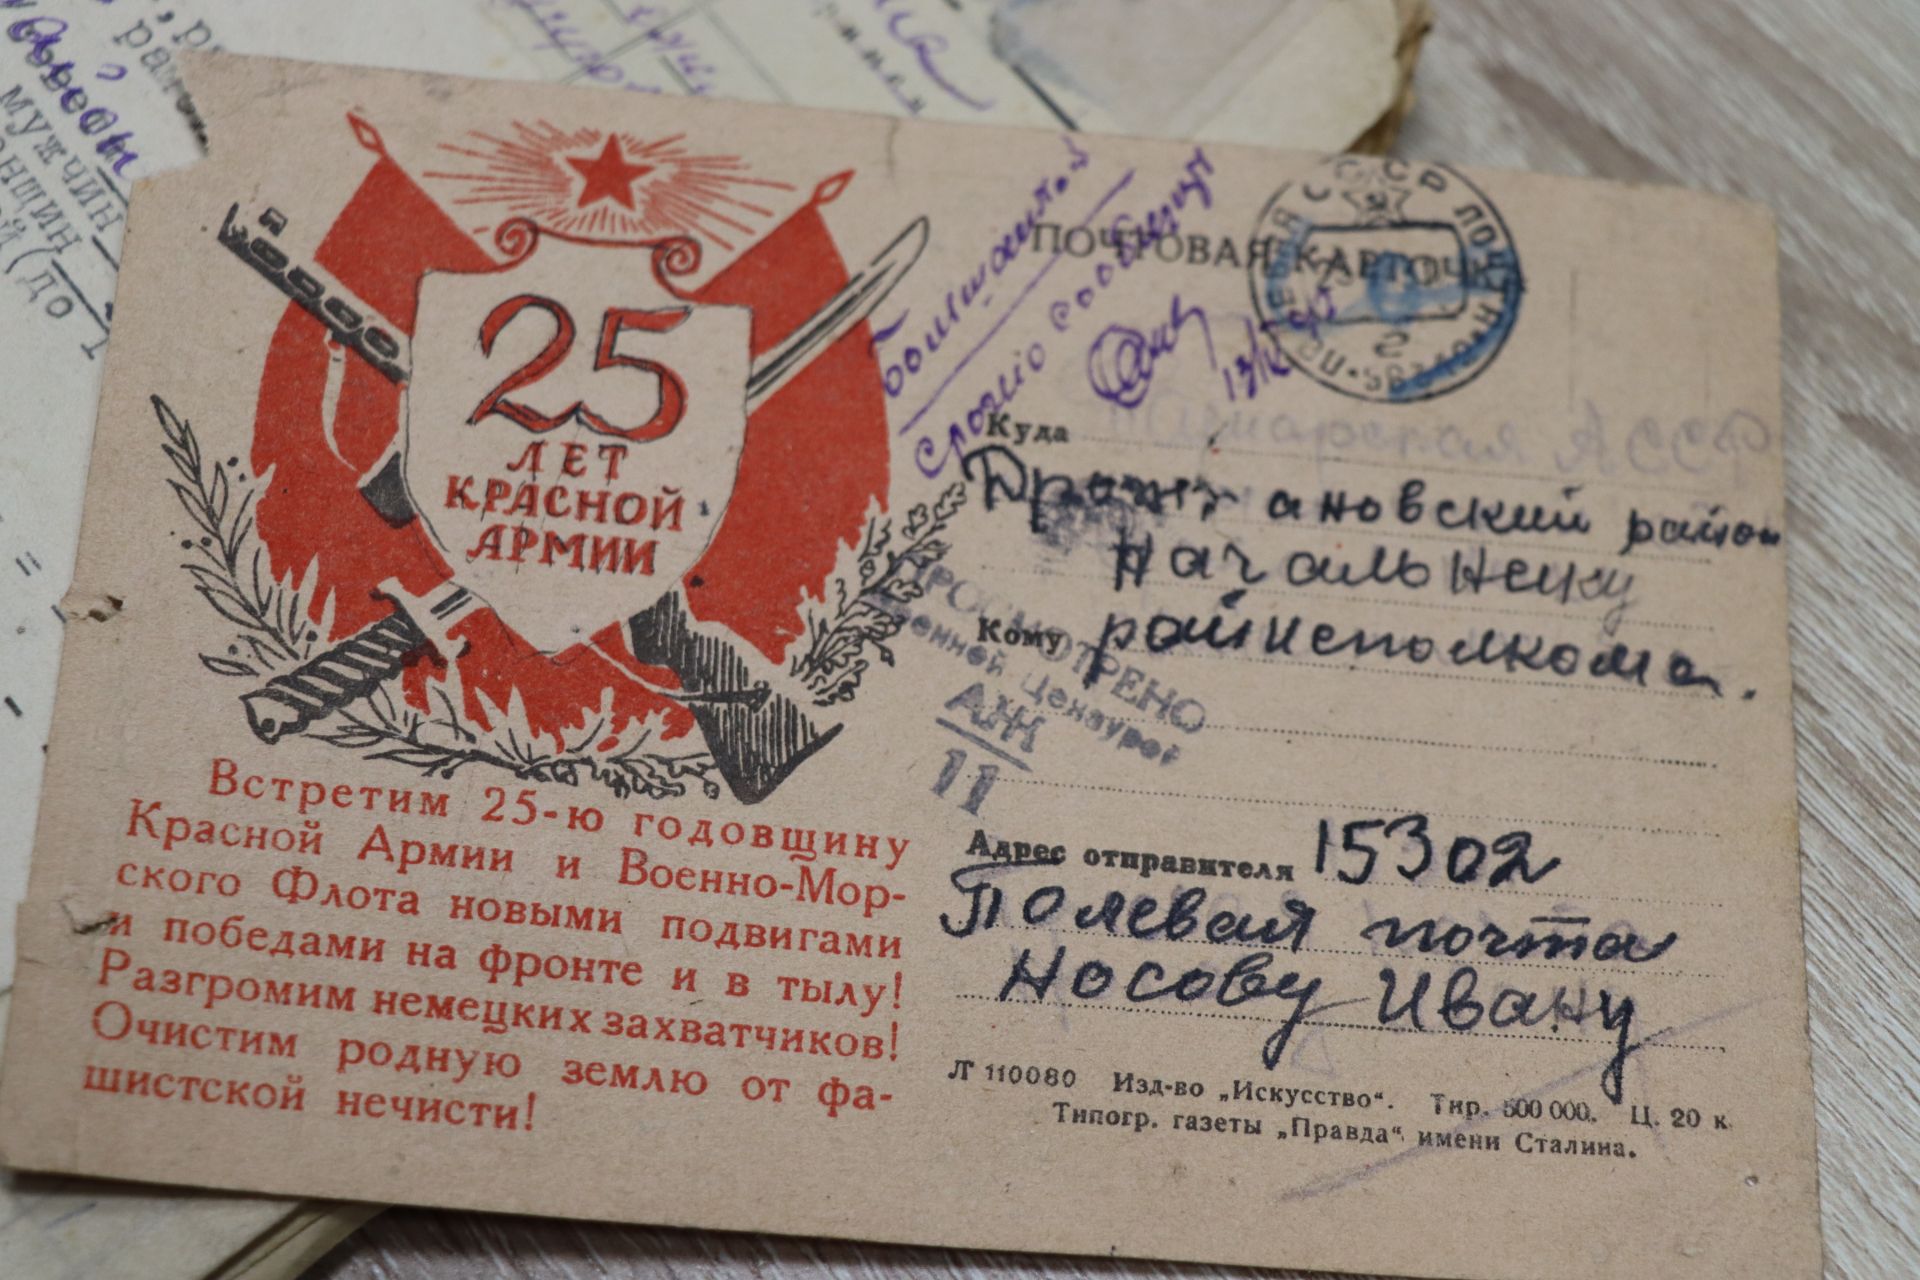 25
ЛЕТ
КРАСНОЙ
АРМИИ
Встретим 25-ю годовщину
Красной Армии и Военно-Мор-
ского Флота новыми подвигами
и победами на фронте и в тылу!
Разгромим немецких захватчиков!
Очистим родную землю от фа-
шистской нечисти!
ПОЧТОВАЯ КАРТОЧКА
срочно сообщить
Куда Татарская АССР
ановский район
Начальнику
Кому райисполкома.
ПРОСМОТРЕНО
Военной Цензурой
11
Адрес отправителя 15302
Полевая почта
Носову Ивану
Л 110080 Изд-во „Искусство“. Тир. 500 000. Ц. 20 к.
Типогр. газеты „Правда“ имени Сталина.
мужчин
(до 1